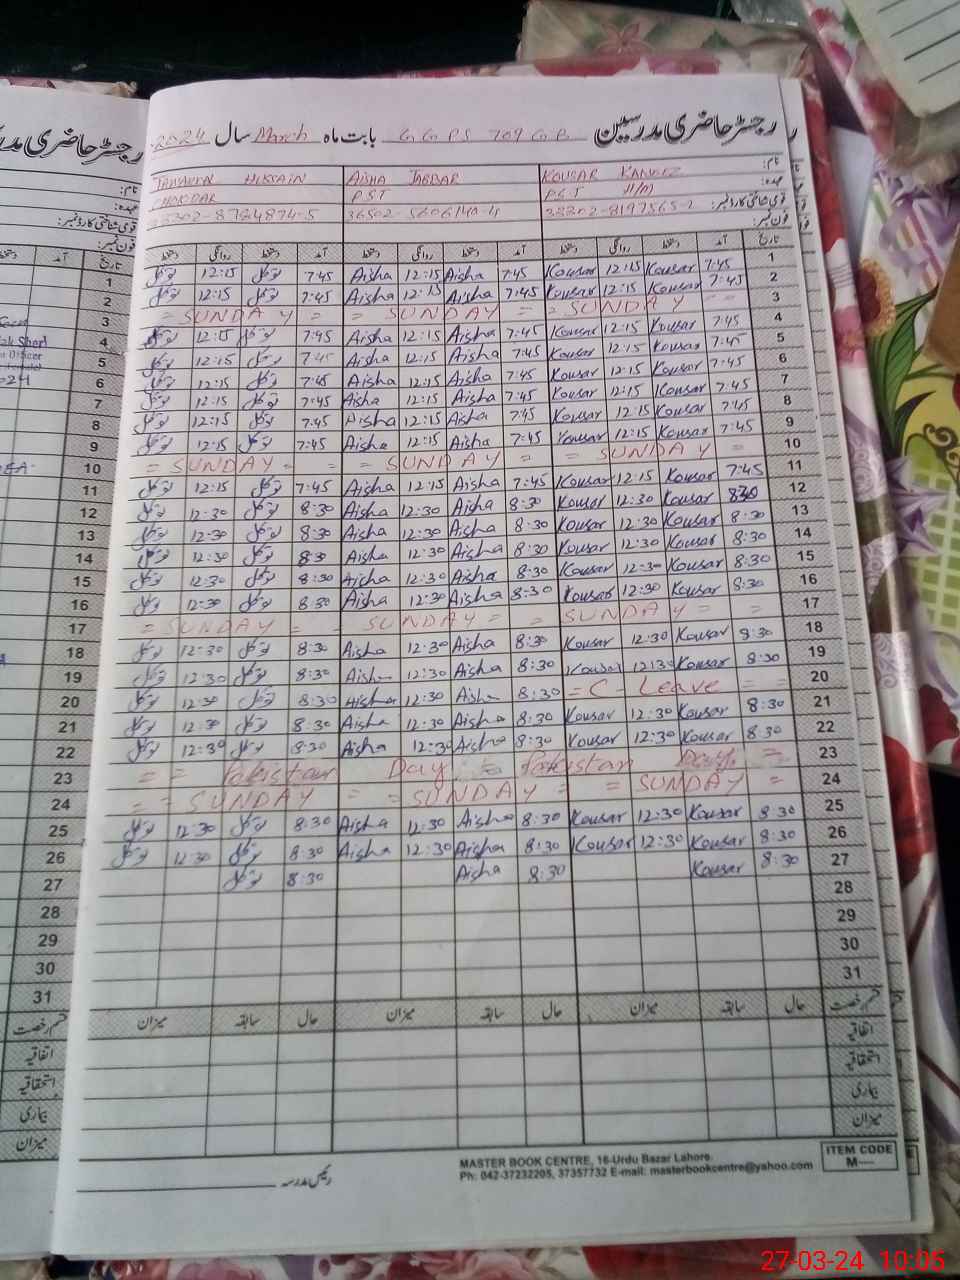 رجسٹر حاضری مدرسین بابت ماہ March سال 2024
نام: KOUSAR AISHA JABBAR HUSSAIN
عہدہ: PST H/M PST CHOKIDAR
قومی شناختی کارڈ نمبر:
فون نمبر:
تاریخ آمد دستخط روانگی دستخط آمد دستخط روانگی دستخط آمد دستخط روانگی دستخط
1 7:45 Kousar 12:15 Kousar 7:45 Aisha 12:15 Aisha 7:45 توکل 12:15 توکل
2 7:45 Kousar 12:15 Kousar 7:45 Aisha 12:15 Aisha 7:45 توکل 12:15 توکل
3 = SUNDAY = = SUNDAY = = SUNDAY =
4 7:45 Kousar 12:15 Kousar 7:45 Aisha 12:15 Aisha 7:45 توکل 12:15 توکل
5 7:45 Kousar 12:15 Kousar 7:45 Aisha 12:15 Aisha 7:45 توکل 12:15 توکل
6 7:45 Kousar 12:15 Kousar 7:45 Aisha 12:15 Aisha 7:45 توکل 12:15 توکل
7 7:45 Kousar 12:15 Kousar 7:45 Aisha 12:15 Aisha 7:45 توکل 12:15 توکل
8 7:45 Kousar 12:15 Kousar 7:45 Aisha 12:15 Aisha 7:45 توکل 12:15 توکل
9 7:45 Kousar 12:15 Kousar 7:45 Aisha 12:15 Aisha 7:45 توکل 12:15 توکل
10 = SUNDAY = = SUNDAY = = SUNDAY =
11 7:45 Kousar 12:15 Kousar 7:45 Aisha 12:15 Aisha 7:45 توکل 12:15 توکل
12 8:30 Kousar 12:30 Kousar 8:30 Aisha 12:30 Aisha 8:30 توکل 12:30 توکل
13 8:30 Kousar 12:30 Kousar 8:30 Aisha 12:30 Aisha 8:30 توکل 12:30 توکل
14 8:30 Kousar 12:30 Kousar 8:30 Aisha 12:30 Aisha 8:30 توکل 12:30 توکل
15 8:30 Kousar 12:30 Kousar 8:30 Aisha 12:30 Aisha 8:30 توکل 12:30 توکل
16 8:30 Kousar 12:30 Kousar 8:30 Aisha 12:30 Aisha 8:30 توکل 12:30 توکل
17 = SUNDAY = SUNDAY = = SUNDAY = =
18 8:30 Kousar 12:30 Kousar 8:30 Aisha 12:30 Aisha 8:30 توکل 12:30 توکل
19 8:30 Kousar 12:30 Kousar 8:30 Aisha 12:30 Aisha 8:30 توکل 12:30 توکل
20 = C - Leave = = 8:30 Aisha 12:30 Aisha 8:30 توکل 12:30 توکل
21 8:30 Kousar 12:30 Kousar 8:30 Aisha 12:30 Aisha 8:30 توکل 12:30 توکل
22 8:30 Kousar 12:30 Kousar 8:30 Aisha 12:30 Aisha 8:30 توکل 12:30 توکل
23 = = Pakistan Day = Pakistan Day =
24 = = SUNDAY = = SUNDAY = = SUNDAY =
25 8:30 Kousar 12:30 Kousar 8:30 Aisha 12:30 Aisha 8:30 توکل 12:30 توکل
26 8:30 Kousar 12:30 Kousar 8:30 Aisha 12:30 Aisha 8:30 توکل 12:30 توکل
27 8:30 Kousar 8:30 Aisha 8:30 توکل
28
29
30
31
قسم رخصت حال سابقہ میزان حال سابقہ میزان حال سابقہ میزان
اتفاقیہ
استحقاقیہ
بیماری
میزان
رئیس مدرسہ
MASTER BOOK CENTRE, 16-Urdu Bazar Lahore.
Ph: 042-37232205, 37357732 E-mail: masterbookcentre@yahoo.com
ITEM CODE
M----
27-03-24 10:05